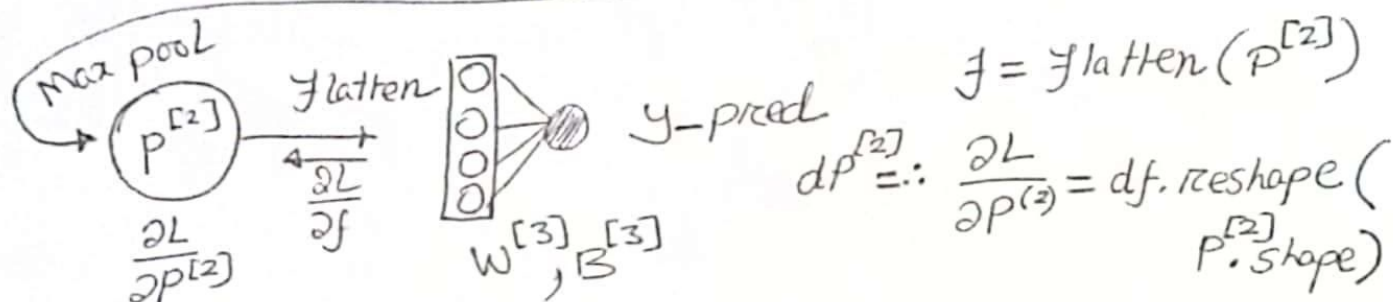 Max pool
P^[2]
∂L/∂P^[2]
flatten
∂L/∂f
W^[3], B^[3]
y-pred
f = flatten(P^[2])
dP^[2] =∴ ∂L/∂P^(2) = df.reshape(
P^[2].shape)